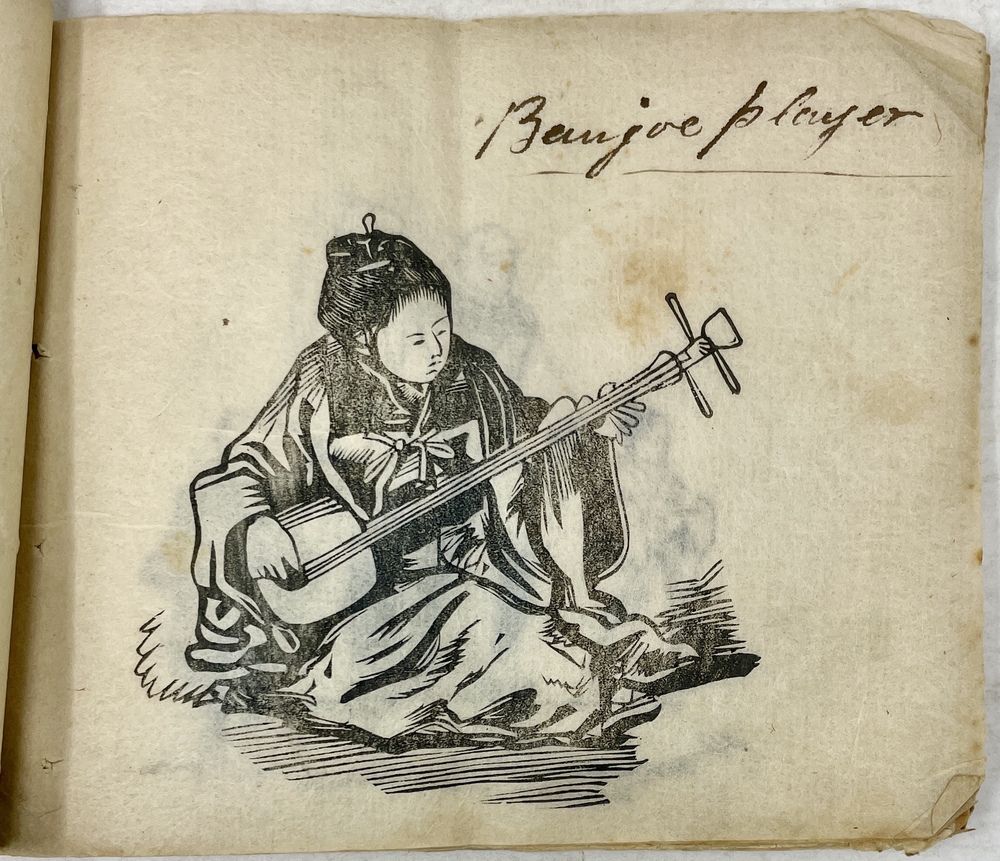 Banjoe player